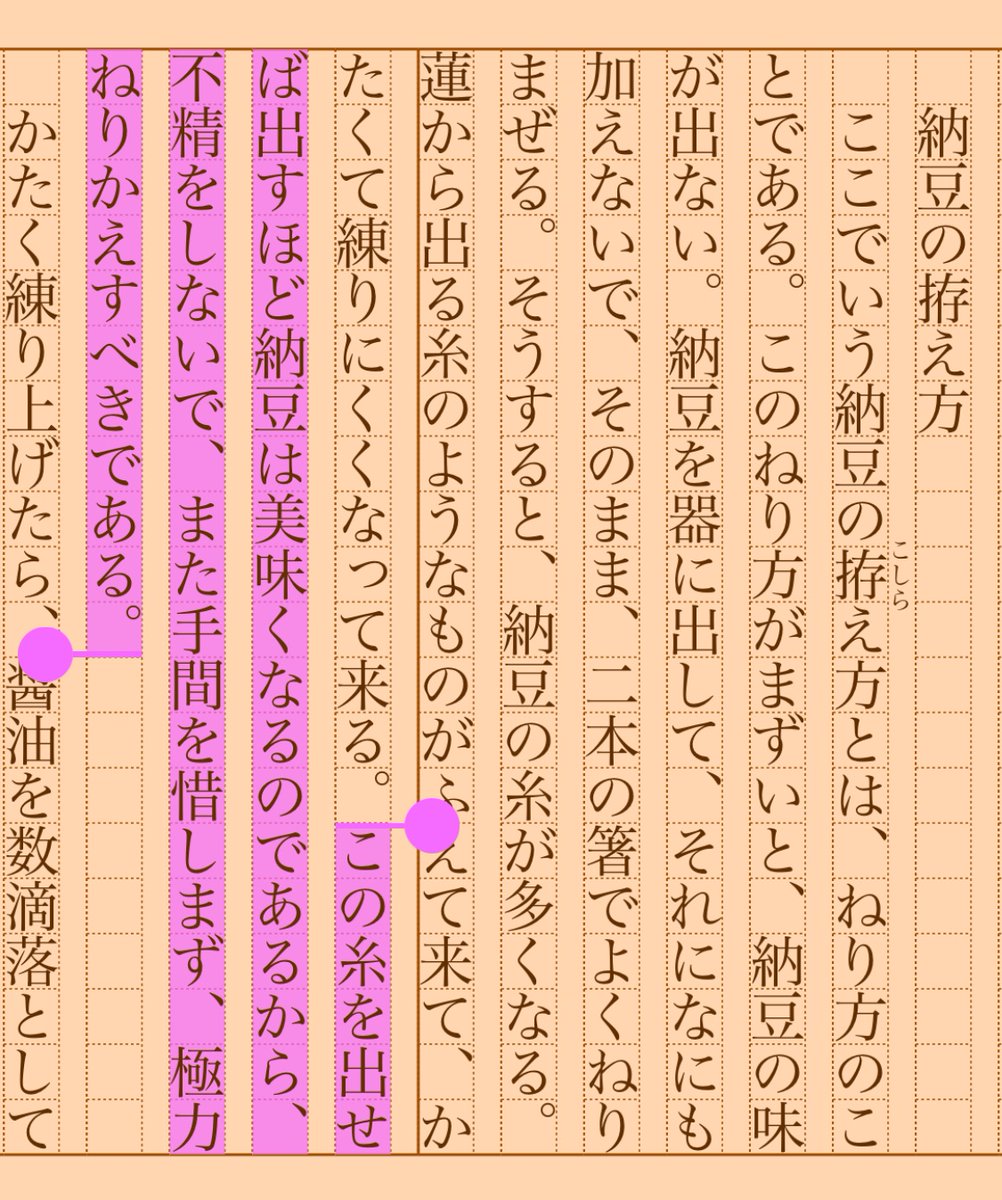 納豆の拵え方
ここでいう納豆の拵え方とは、ねり方のこ
こしら
とである。このねり方がまずいと、納豆の味
が出ない。納豆を器に出して、それになにも
加えないで、そのまま、二本の箸でよくねり
まぜる。そうすると、納豆の糸が多くなる。
蓮から出る糸のようなものがふえて来て、か
たくて練りにくくなって来る。この糸を出せ
ば出すほど納豆は美味くなるのであるから、
不精をしないで、また手間を惜しまず、極力
ねりかえすべきである。
かたく練り上げたら、醤油を数滴落として